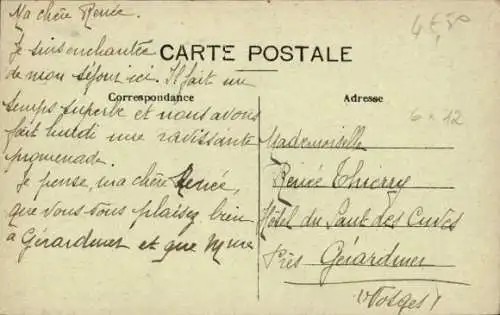 Ma chère Renée.
Je suis enchantée
de mon séjour ici. Il fait un
temps superbe et nous avons
fait lundi une ravissante
promenade.
Je pense, ma chère Renée,
que vous vous plaisez bien
à Gérardmer et que Mme
CARTE POSTALE
Correspondance
Adresse
4€,50
6 x 12
Mademoiselle
Renée Thierry
Hôtel du Saut des Cuves
Près Gérardmer
(Vosges)